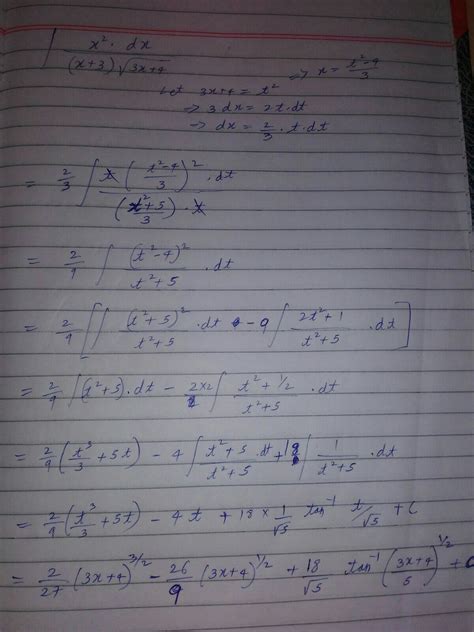 ∫ x² · dx / (x+3) √(3x+4)
⇒ x = (t²-4)/3
Let 3x+4 = t²
⇒ 3 dx = 2t·dt
→ dx = 2/3 · t·dt
= 2/3 ∫ t ((t²-4)/3)² / ((t²+5)/3) · t · dt
= 2/9 ∫ (t²-4)² / (t²+5) · dt
= 2/9 [∫ (t²+5)² / (t²+5) · dt - 9 ∫ (2t²+1) / (t²+5) · dt]
= 2/9 ∫ (t²+5) · dt - 2×2/2 ∫ (t²+1/2) / (t²+5) · dt
= 2/9 (t³/3 + 5t) - 4 ∫ (t²+5) / (t²+5) · dt + 18 ∫ 1 / (t²+5) · dt
= 2/9 (t³/3 + 5t) - 4t + 18 × 1/√5 tan⁻¹ t/√5 + C
= 2/27 (3x+4)^3/2 - 26/9 (3x+4)^1/2 + 18/√5 tan⁻¹ ((3x+4)/5)^1/2 + C